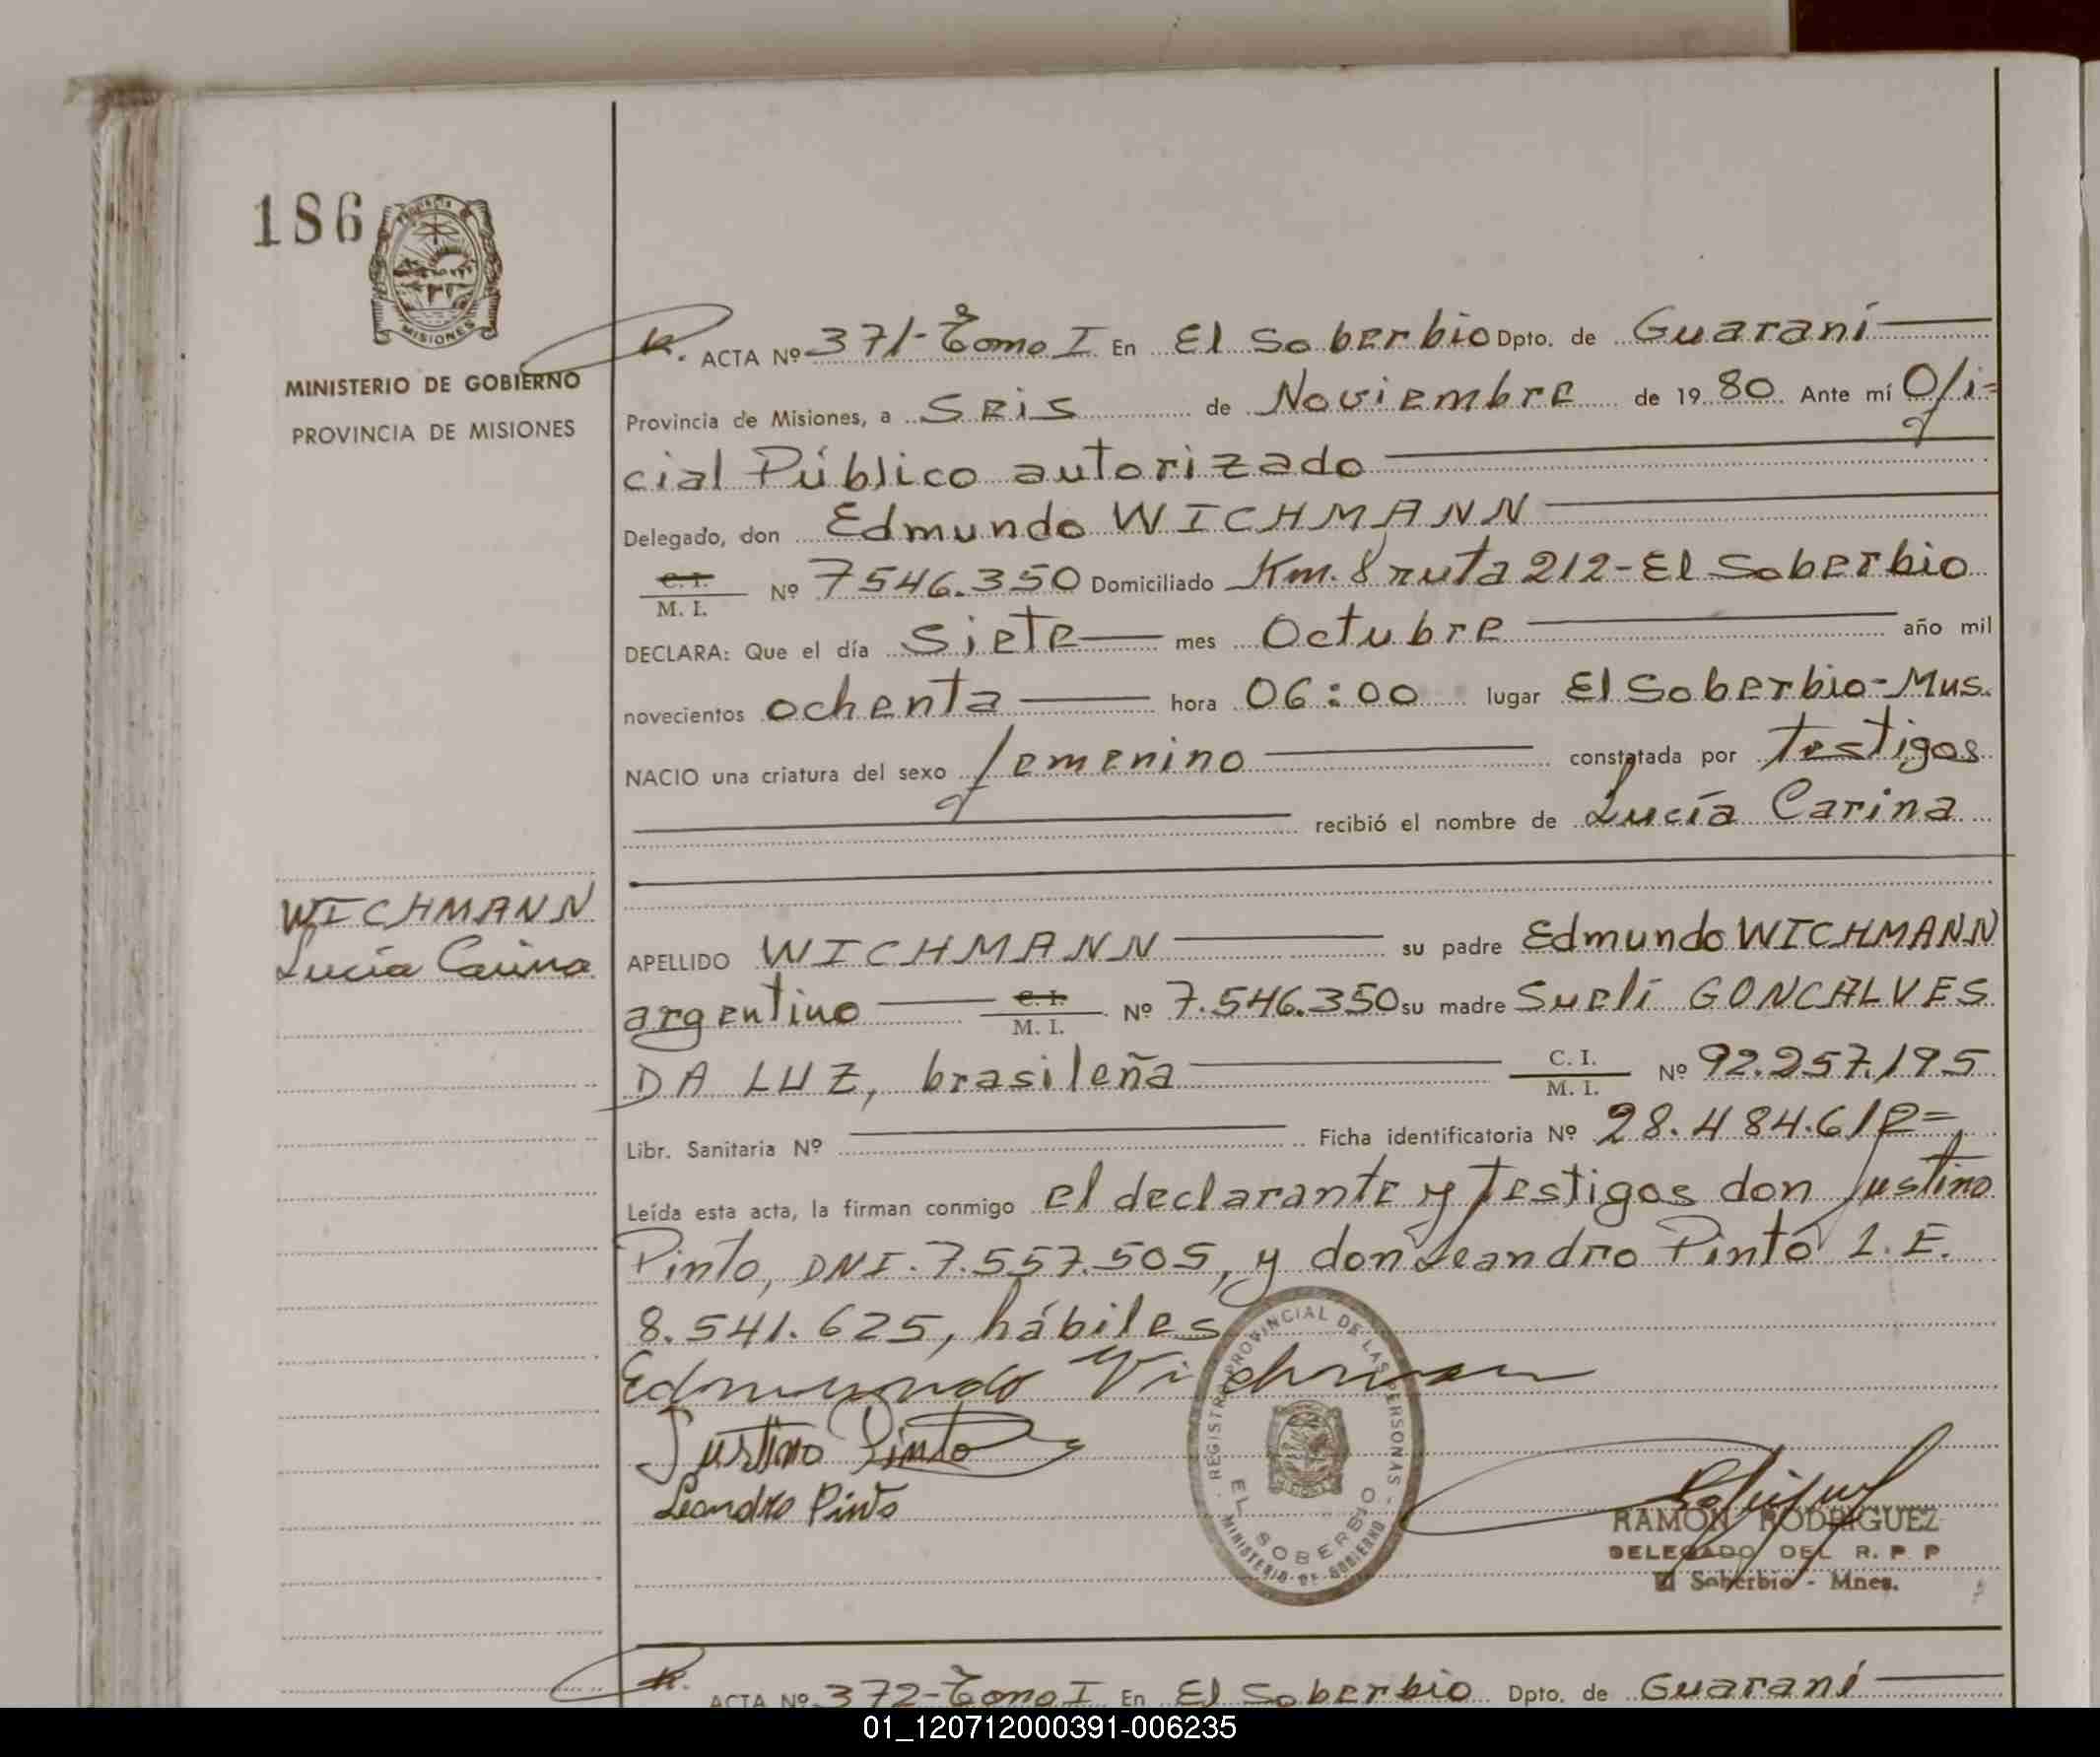 186
PROVINCIA
MISIONES
MINISTERIO DE GOBIERNO
PROVINCIA DE MISIONES
ACTA Nº 371-Tomo I En El Soberbio Dpto. de Guaraní
Provincia de Misiones, a Seis de Noviembre de 1980. Ante mí Ofi=
cial Público autorizado
Delegado, don Edmundo WICHMANN
C. I. / M. I. Nº 7546.350 Domiciliado Km. 8 ruta 212-El Soberbio
DECLARA: Que el día Siete mes Octubre año mil
novecientos ochenta hora 06:00 lugar El Soberbio-Mus.
NACIO una criatura del sexo femenino constatada por testigos
recibió el nombre de Lucía Carina
WICHMANN
Lucía Carina
APELLIDO WICHMANN su padre Edmundo WICHMANN
argentino C. I. / M. I. Nº 7.546.350 su madre Sueli GONCALVES
DA LUZ, brasileña C. I. / M. I. Nº 92.257.195
Libr. Sanitaria Nº Ficha identificatoria Nº 28.484.612=
Leída esta acta, la firman conmigo el declarante y testigos don Justino
Pinto, DNI. 7.557.505, y don Leandro Pinto L.E.
8.541.625, hábiles
Edmundo Vichman
Justino Pinto
Leandro Pinto
REGISTRO PROVINCIAL DE LAS PERSONAS
EL SOBERBIO
MINISTERIO DE GOBIERNO
RAMON RODRIGUEZ
DELEGADO DEL R. P. P
El Soberbio - Mnes.
ACTA Nº 372-Tomo I En El Soberbio Dpto. de Guaraní
01_120712000391-006235